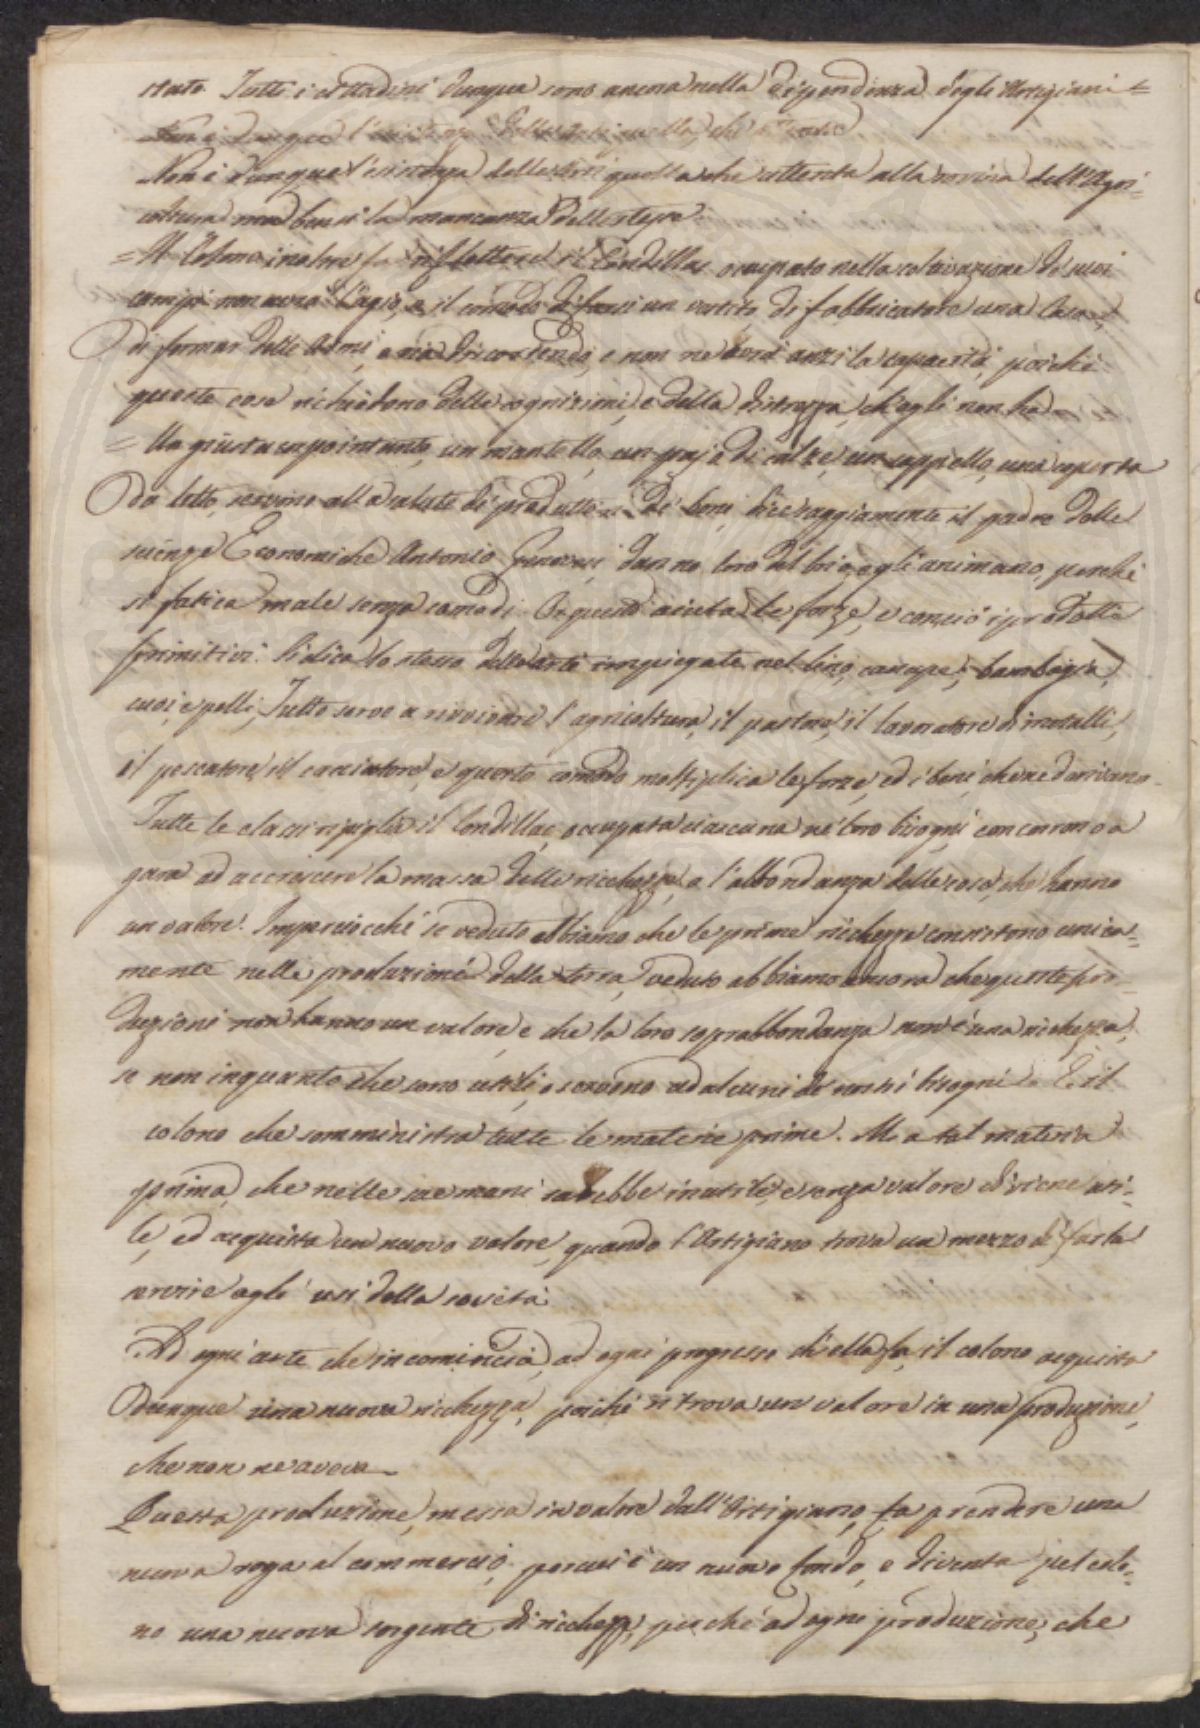 stato. Tutti i cittadini dunque sono ancora nella dipendenza degli Artigiani =
Non è dunque l'esistenza delle arti quella, che
Non è dunque l'esistenza delle Arti quella che attenta alla rovina dell'Agri-
coltura ma bensì la mancanza dell'istesse.
= Il Colono inoltre fa riflettere il Condillac occupato nella coltivazione de' suoi
campi non avrà l'agio, e il comodo di farsi un vestito di fabbricatore una Casa,
di formar delle Armi, e non ne avrà anzi la capacità, poichè
queste cose richiedono delle cognizioni, e della destrezza, ch'egli non ha =
= Un giustacupointanto, un mantello, un pajo di calze, un cappello, una coperta
da letto, servono alla salute di produttori di beni, dice saggiamente il padre delle
scienze Economiche Antonio Genovesi, danno loro del brio, e gli animano, perchè
si fatica male senza comodi. Or questi aiuta le forze, e conciò i prodotti
primitivi. Si dica lo stesso delle arti impiegate nel lino, canape, bambagia,
cuoi, e pelli, Tutto serve a rinvenire l'agricoltura, il pastore, il lavoratore di metalli,
il pescatore, il cacciatore, e questo comodo moltiplica le forze, ed i beni, che ne derivano.
Tutte le classi ripiglia il Condillac, occupata ciascuna ne' loro bisogni concorrono a
gara ad accrescere la massa delle ricchezze, o l'abbondanza delle cose, che hanno
un valore. Imperciocchè se veduto abbiamo che le prime ricchezze consistono unica-
mente nelle produzioni della terra, veduto abbiamo ancora che queste pro-
duzioni non hanno un valore, e che la loro soprabbondanza non è una richezza,
se non inquanto che sono utili, o servono ad alcuni de' nostri bisogni. È il
colono che somministra tutte le materie prime. Ma tal materia
prima, che nelle sue mani sarebbe inutile, e senza valore diviene uti-
le, ed acquista un nuovo valore, quando l'Artigiano trova un mezzo di farla
servire agli usi della società.
Ad ogni arte che incomincia, ad ogni progresso ch'ella fa, il colono acquista
dunque una nuova ricchezza, poichè ritrova un valore in una produzione,
che non ne aveva =
Questa produzione, messa in valore dall'Artigiano, fa prendere una
nuova voga al commercio, per cui è un nuovo fondo, e diventa pel colo-
no una nuova sorgente di ricchezze, perchè ad ogni produzione, che